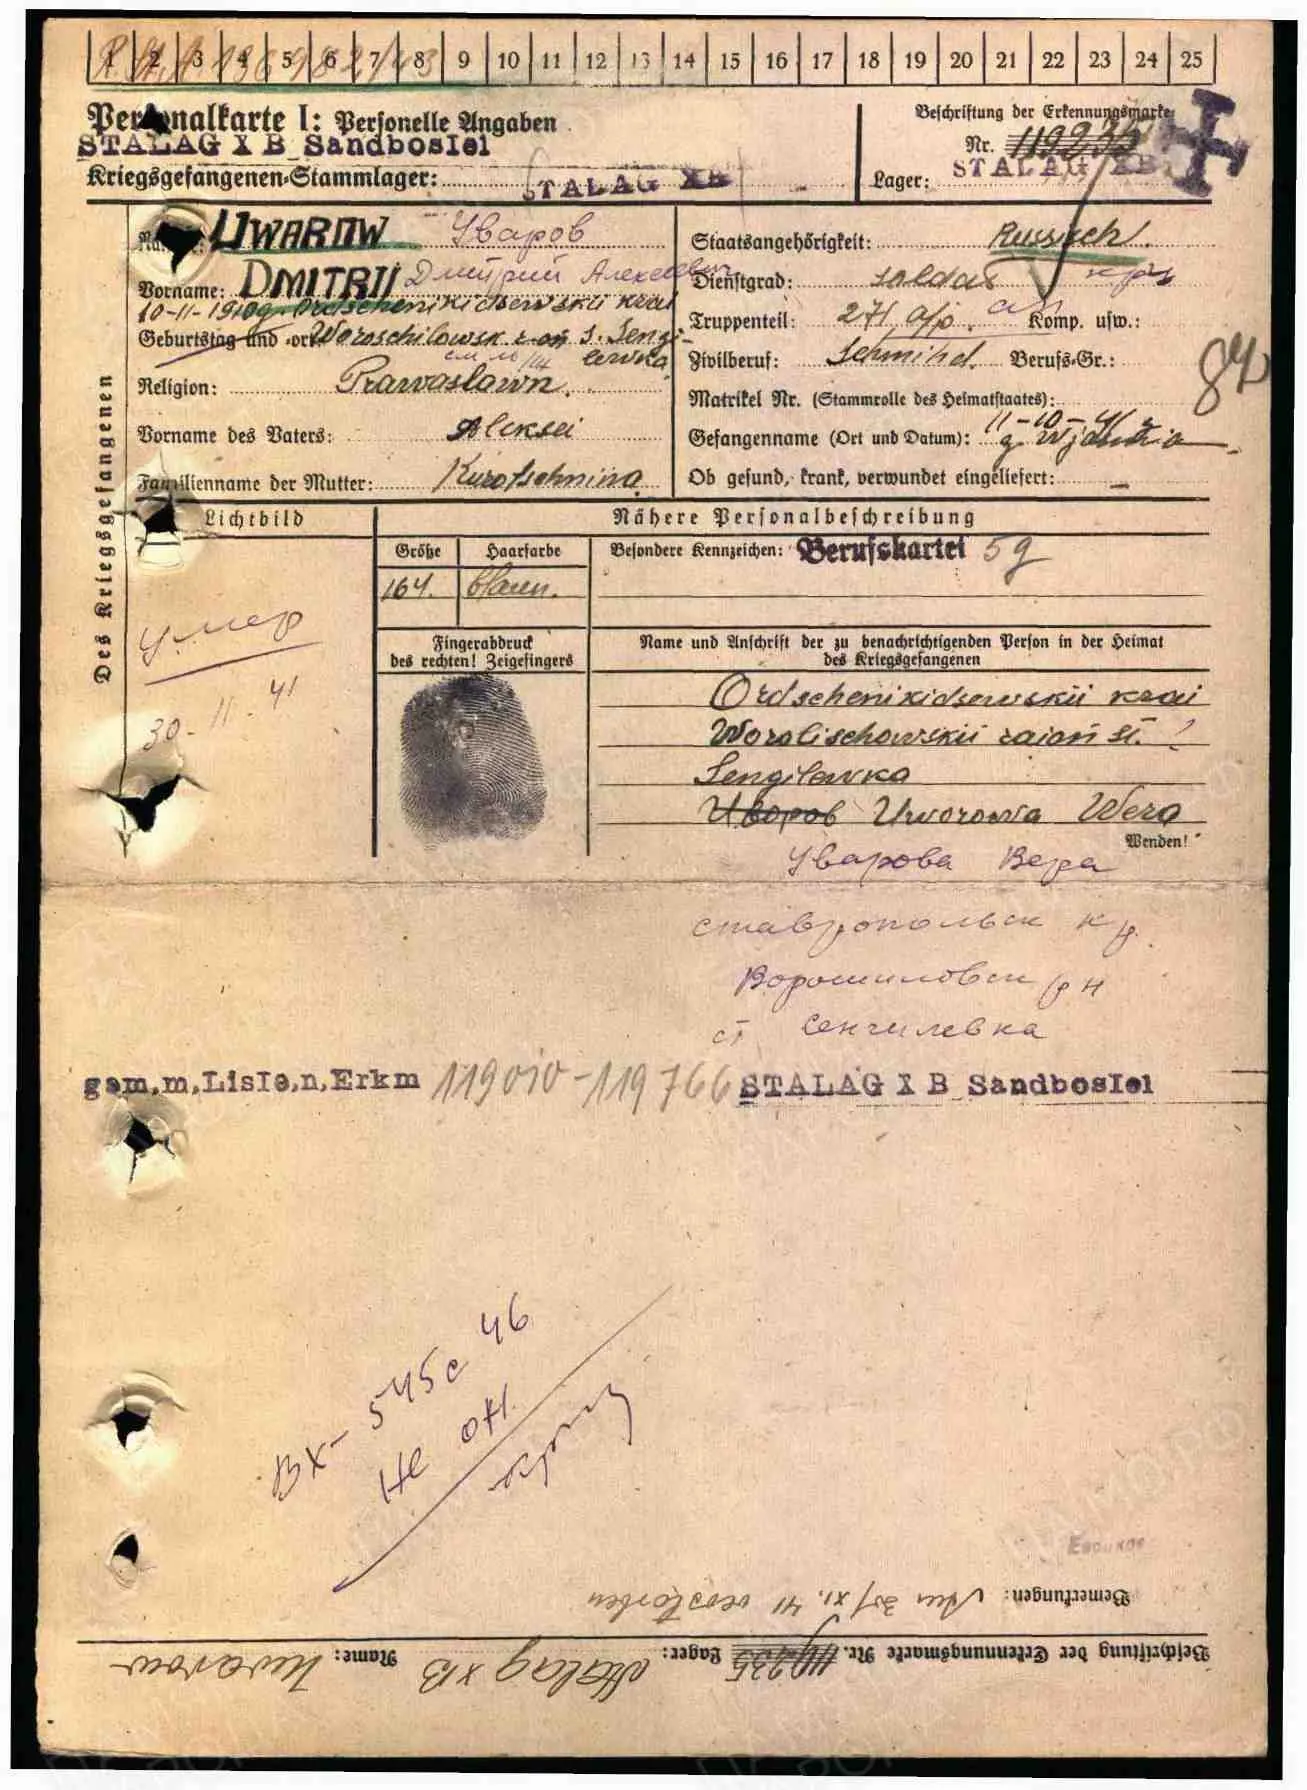 1 2 3 4 5 6 7 8 9 10 11 12 13 14 15 16 17 18 19 20 21 22 23 24 25
Personalkarte I: Personelle Angaben
Beschriftung der Erkennungsmarke
STALAG X B Sandbostel
Nr. 119235
Kriegsgefangenen-Stammlager: STALAG XB
Lager: STALAG XB
Des Kriegsgefangenen
Name: UWAROW Уваров
Staatsangehörigkeit: Russisch.
Vorname: DMITRIJ Дмитрий Алексеевич
Dienstgrad: soldat кр
10-11-1910g. Ordschenikidsewskii krai
Geburtstag und -ort: Woroschilowsk r-on s. Sengi-
lewka
Truppenteil: 271 a/p. Komp. usw.:
Zivilberuf: Berufs-Gr.:
Religion: Prawaslawn.
Matrikel Nr. (Stammrolle des Heimatstaates):
84
Vorname des Vaters: Aleksei
11-10-41
Gefangenname (Ort und Datum): g. Wjasma
Familienname der Mutter: Kurotschnina
Ob gesund, krank, verwundet eingeliefert: —
Lichtbild
Nähere Personalbeschreibung
Größe
Haarfarbe
Besondere Kennzeichen: Berufskartei 59
164.
blaun.
умер
30-11-41
Fingerabdruck
des rechten! Zeigefingers
Name und Anschrift der zu benachrichtigenden Person in der Heimat
des Kriegsgefangenen
Ordschenikidsewskii krai
Woralischowskii raion st.
Sengilewka
Уваров Uworowa Wera
Wenden!
Уварова Вера
ставропольск кр.
Ворошиловск р н
ст Сенгилевка
gem.m.Liste.n.Erkm 119010-119766 STALAG X B Sandbostel
Вх-545с 46
Не отп.
Bemerkungen: Am 30/XI.41 verstorben
Beschriftung der Erkennungsmarke Nr. 119235 Lager: Stalag XB Name: Uwarow